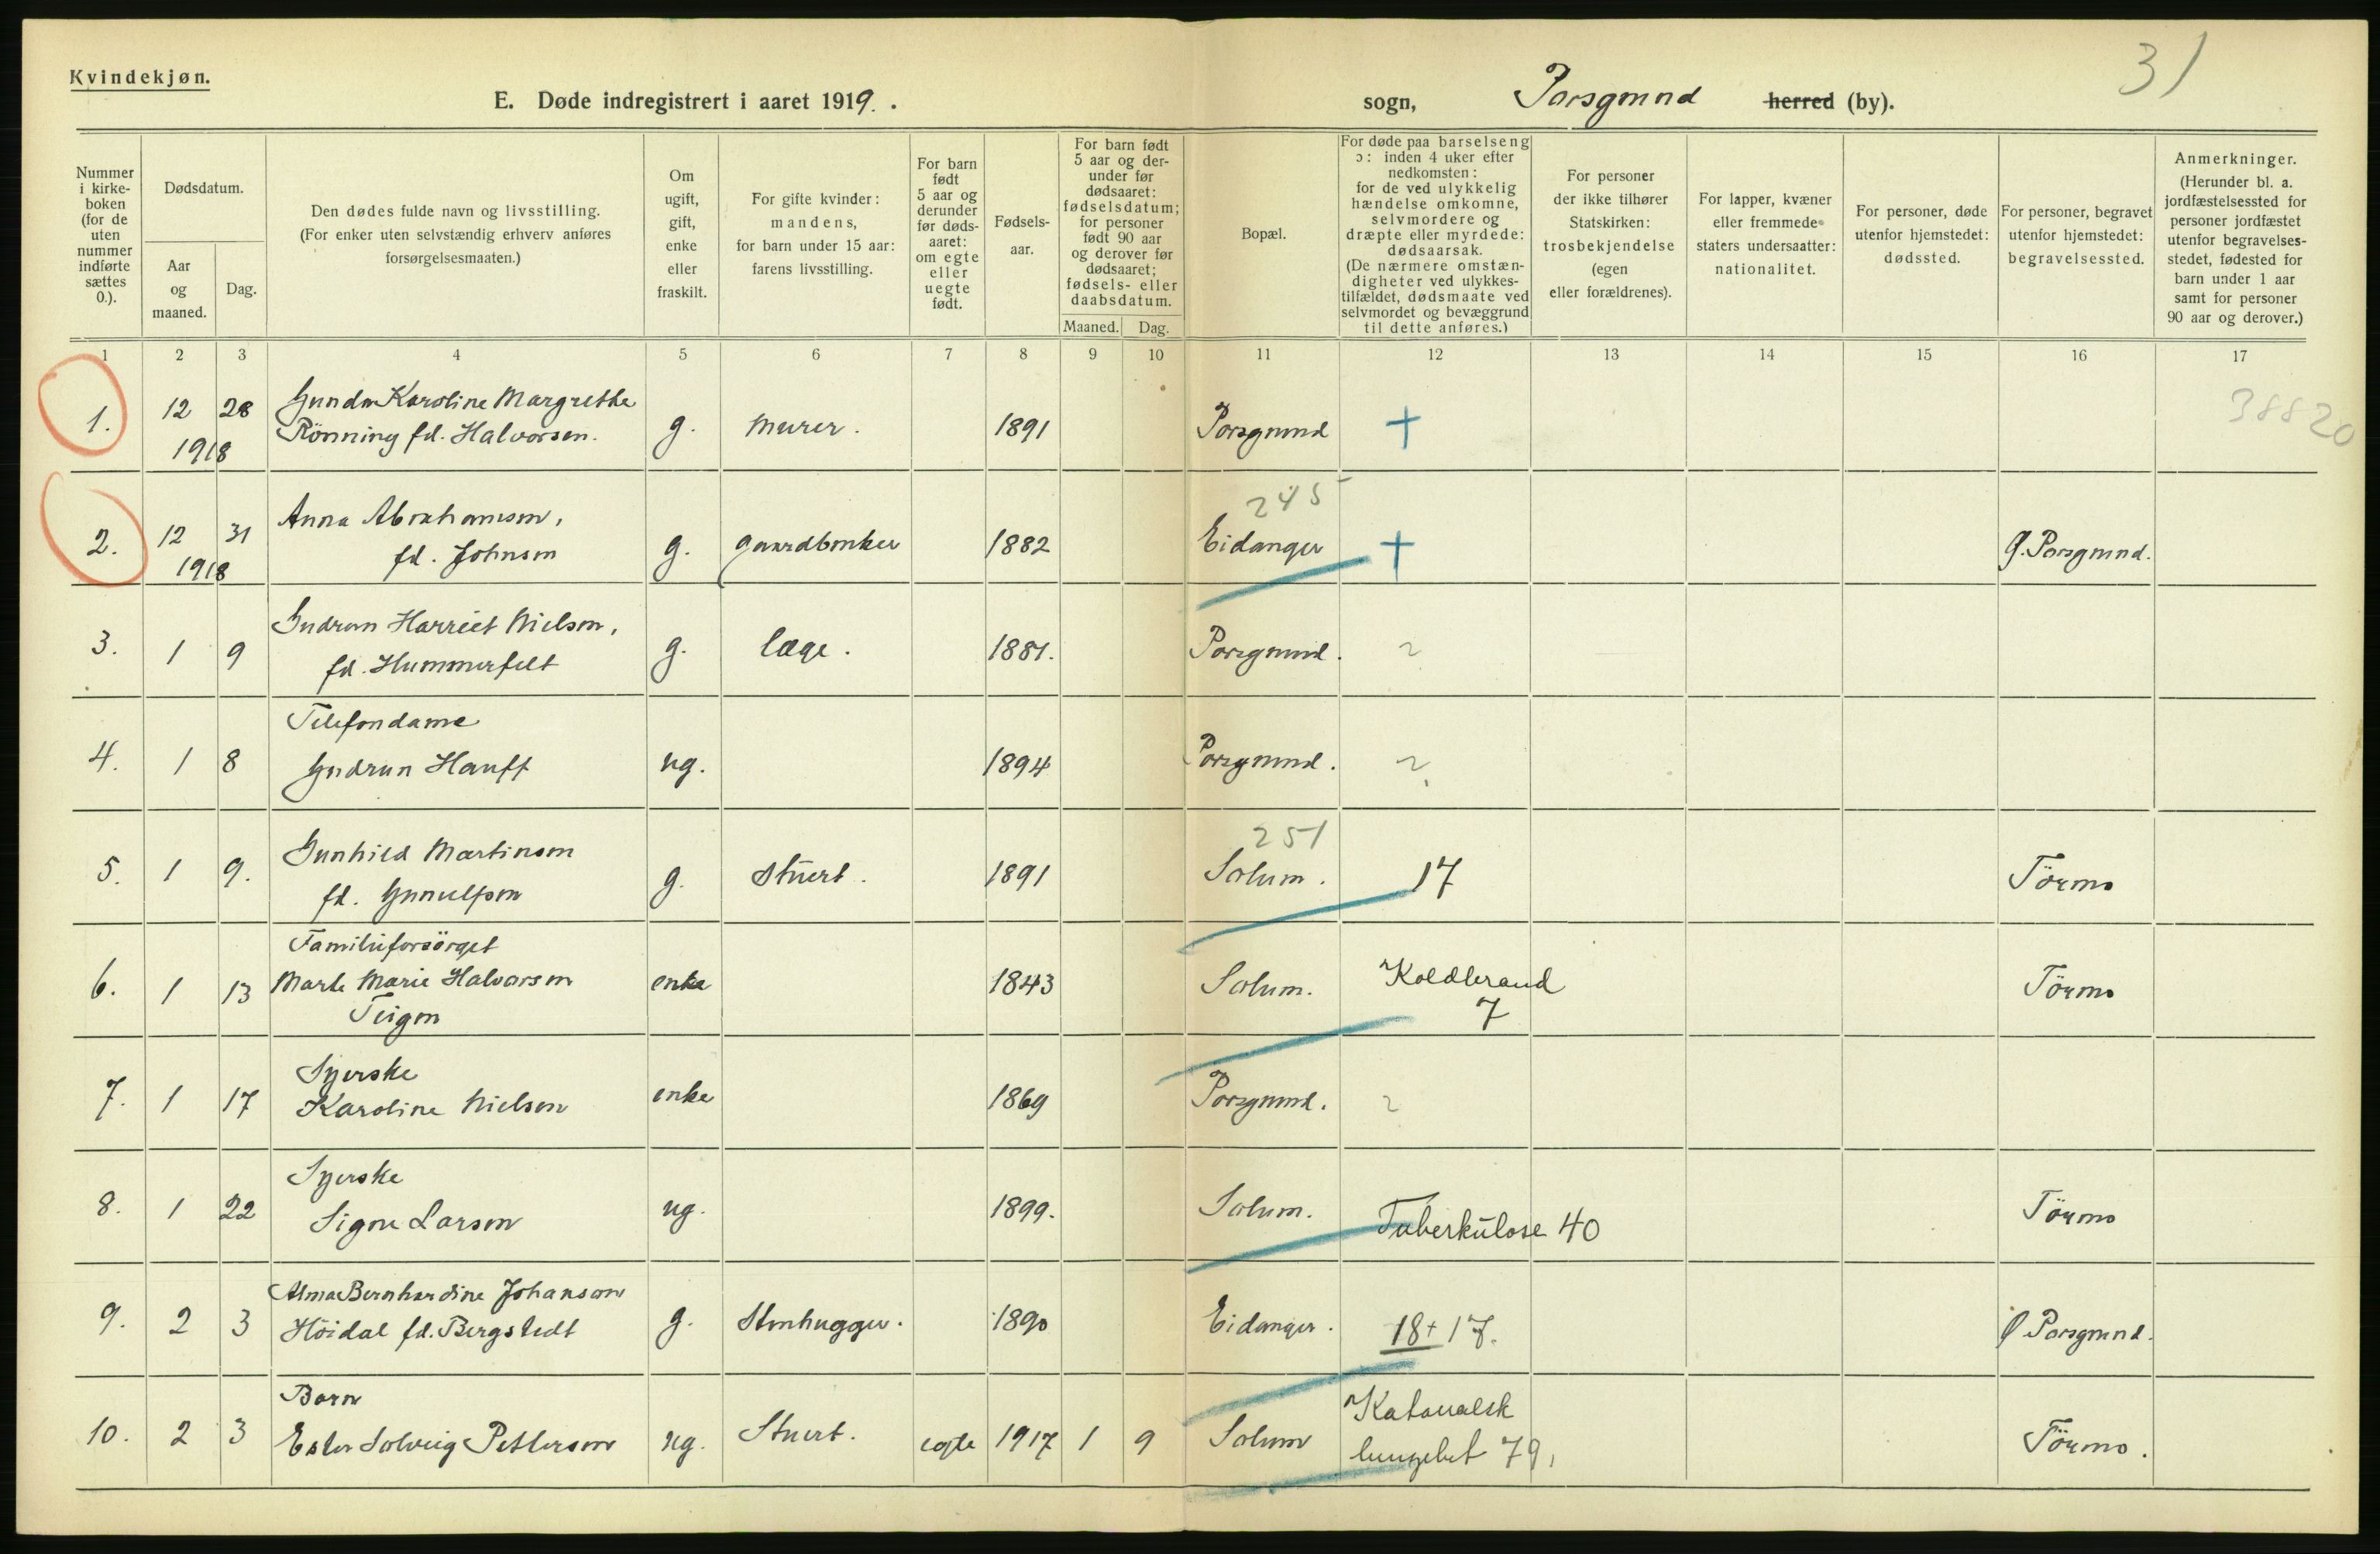 Kvindekjøn.
31
E. Døde indregistrert i aaret 1919. .
sogn, Porsgrund herred (by).
Nummer i kirke-boken (for de uten nummer indførte sættes 0.).
Dødsdatum.
Aar og maaned.
Dag.
Den dødes fulde navn og livsstilling. (For enker uten selvstændig erhverv anføres forsørgelsesmaaten.)
Om ugift, gift, enke eller fraskilt.
For gifte kvinder: mandens, for barn under 15 aar: farens livsstilling.
For barn født 5 aar og derunder før døds-aaret: om egte eller uegte født.
Fødsels-aar.
For barn født 5 aar og der-under før dødsaaret: fødselsdatum; for personer født 90 aar og derover før dødsaaret; fødsels- eller daabsdatum.
Maaned. Dag.
Bopæl.
For døde paa barselseng ɔ: inden 4 uker efter nedkomsten: for de ved ulykkelig hændelse omkomne, selvmordere og dræpte eller myrdede: dødsaarsak. (De nærmere omstæn-digheter ved ulykkes-tilfældet, dødsmaate ved selvmordet og bevæggrund til dette anføres.)
For personer der ikke tilhører Statskirken: trosbekjendelse (egen eller forældrenes).
For lapper, kvæner eller fremmede staters undersaatter: nationalitet.
For personer, døde utenfor hjemstedet: dødssted.
For personer, begravet utenfor hjemstedet: begravelsessted.
Anmerkninger. (Herunder bl. a. jordfæstelsessted for personer jordfæstet utenfor begravelses-stedet, fødested for barn under 1 aar samt for personer 90 aar og derover.)
1 2 3 4 5 6 7 8 9 10 11 12 13 14 15 16 17
1. 12 28 Gunda Karoline Margrethe
1918 Rönning fd. Halvorsen. g. Murer. 1891 Porsgrund + 38820
245
2. 12 31 Anna Abrahamsen,
1918 fd. Johnsen g. gaardbruker 1882 Eidanger + Ø. Porsgrund.
3. 1 9 Gudrun Harriet Nielsen,
fd. Hummerfelt g. læge. 1881. Porsgrund. ?
4. 1 8 Telefondame
Gudrun Hauff ug. 1894 Porsgrund. ?
251
5. 1 9. Gunhild Martinsen
fd. Gunulfsen g. Stuert. 1891 Solum. 17 Törmo
6. 1 13 Familieforsörget
Marte Marie Halvorsen
Teigen enke 1843 Solum. Koldbrand
7 Törmo
7. 1 17 Syerske
Karoline Nielsen enke 1869 Porsgrund. ?
8. 1 22 Syerske
Signe Larsen ug. 1899. Solum. Tuberkulose 40 Törmo
9. 2 3 Alma Bernhardine Johansen
Höidal fd. Bergstedt g. Stenhugger. 1890 Eidanger. 18+17. Ø Porsgrund.
10. 2 3 Barn
Ester Solveig Pettersen ug. Stuert. egte 1917 1 9 Solum Katarralsk
lungebet 79, Törmo.